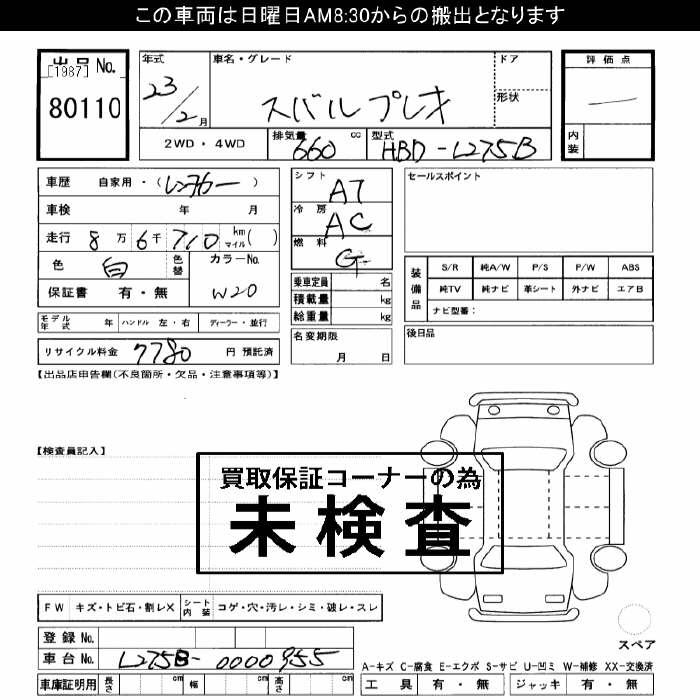 この車両は日曜日AM8:30からの搬出となります
出品 No.
[1987]
80110
年式 23/2月
車名・グレード スバルプレオ
ドア
形状
評価点 —
内装
2WD・4WD 排気量 660 cc 型式 HBD-L275B
車歴 自家用・(レンタカー)
車検 年 月
走行 8万6千710 km マイル( )
色 白 色替 カラーNo. W20
保証書 有・無
モデル年式 年 ハンドル 左・右 ディーラー・並行
リサイクル料金 7780 円 預託済
シフト AT
冷房 AC
燃料 G
乗車定員 名
積載量 kg
総重量 kg
名変期限
月 日
セールスポイント
装備品 S/R 純A/W P/S P/W ABS
純TV 純ナビ 革シート 外ナビ エアB
ナビ型番:
後日品
【出品店申告欄(不良箇所・欠品・注意事項等)】
【検査員記入】
買取保証コーナーの為
未検査
FW キズ・トビ石・割レX シート内装 コゲ・穴・汚レ・シミ・破レ・スレ
登録 No.
車台 No. L275B-0000955
車庫証明用 長さ cm 幅 cm 高さ cm
スペア
A-キズ C-腐食 E-エクボ S-サビ U-凹ミ W-補修 XX-交換済
工具 有・無 ジャッキ 有・無